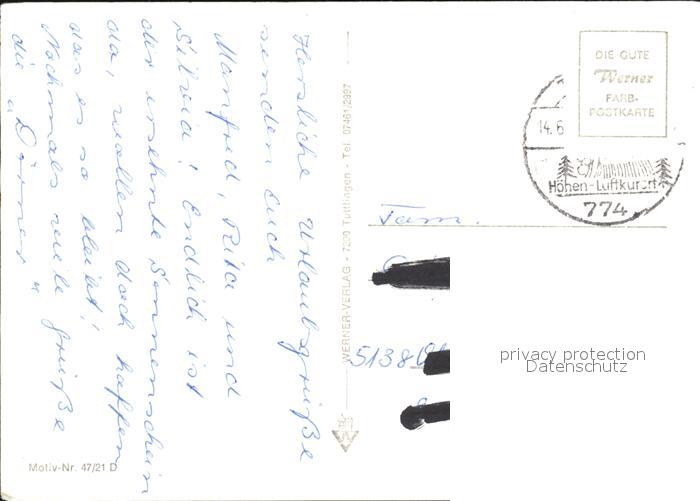 Herzliche Urlaubsgrüße
senden Euch
Manfred, Rita und
Silvia! Endlich ist
der ersehnte Sonnenschein
da, wollen doch hoffen
das es so bleibt!
Nochmals viele Grüße
die "Dörner"
WERNER-VERLAG - 7200 Tuttlingen - Tel. 07461/2997
Motiv-Nr. 47/21 D
DIE GUTE
Werner
FARB-
POSTKARTE
14.6
Höhen-Luftkurort
774
Fam.
5138
privacy protection
Datenschutz